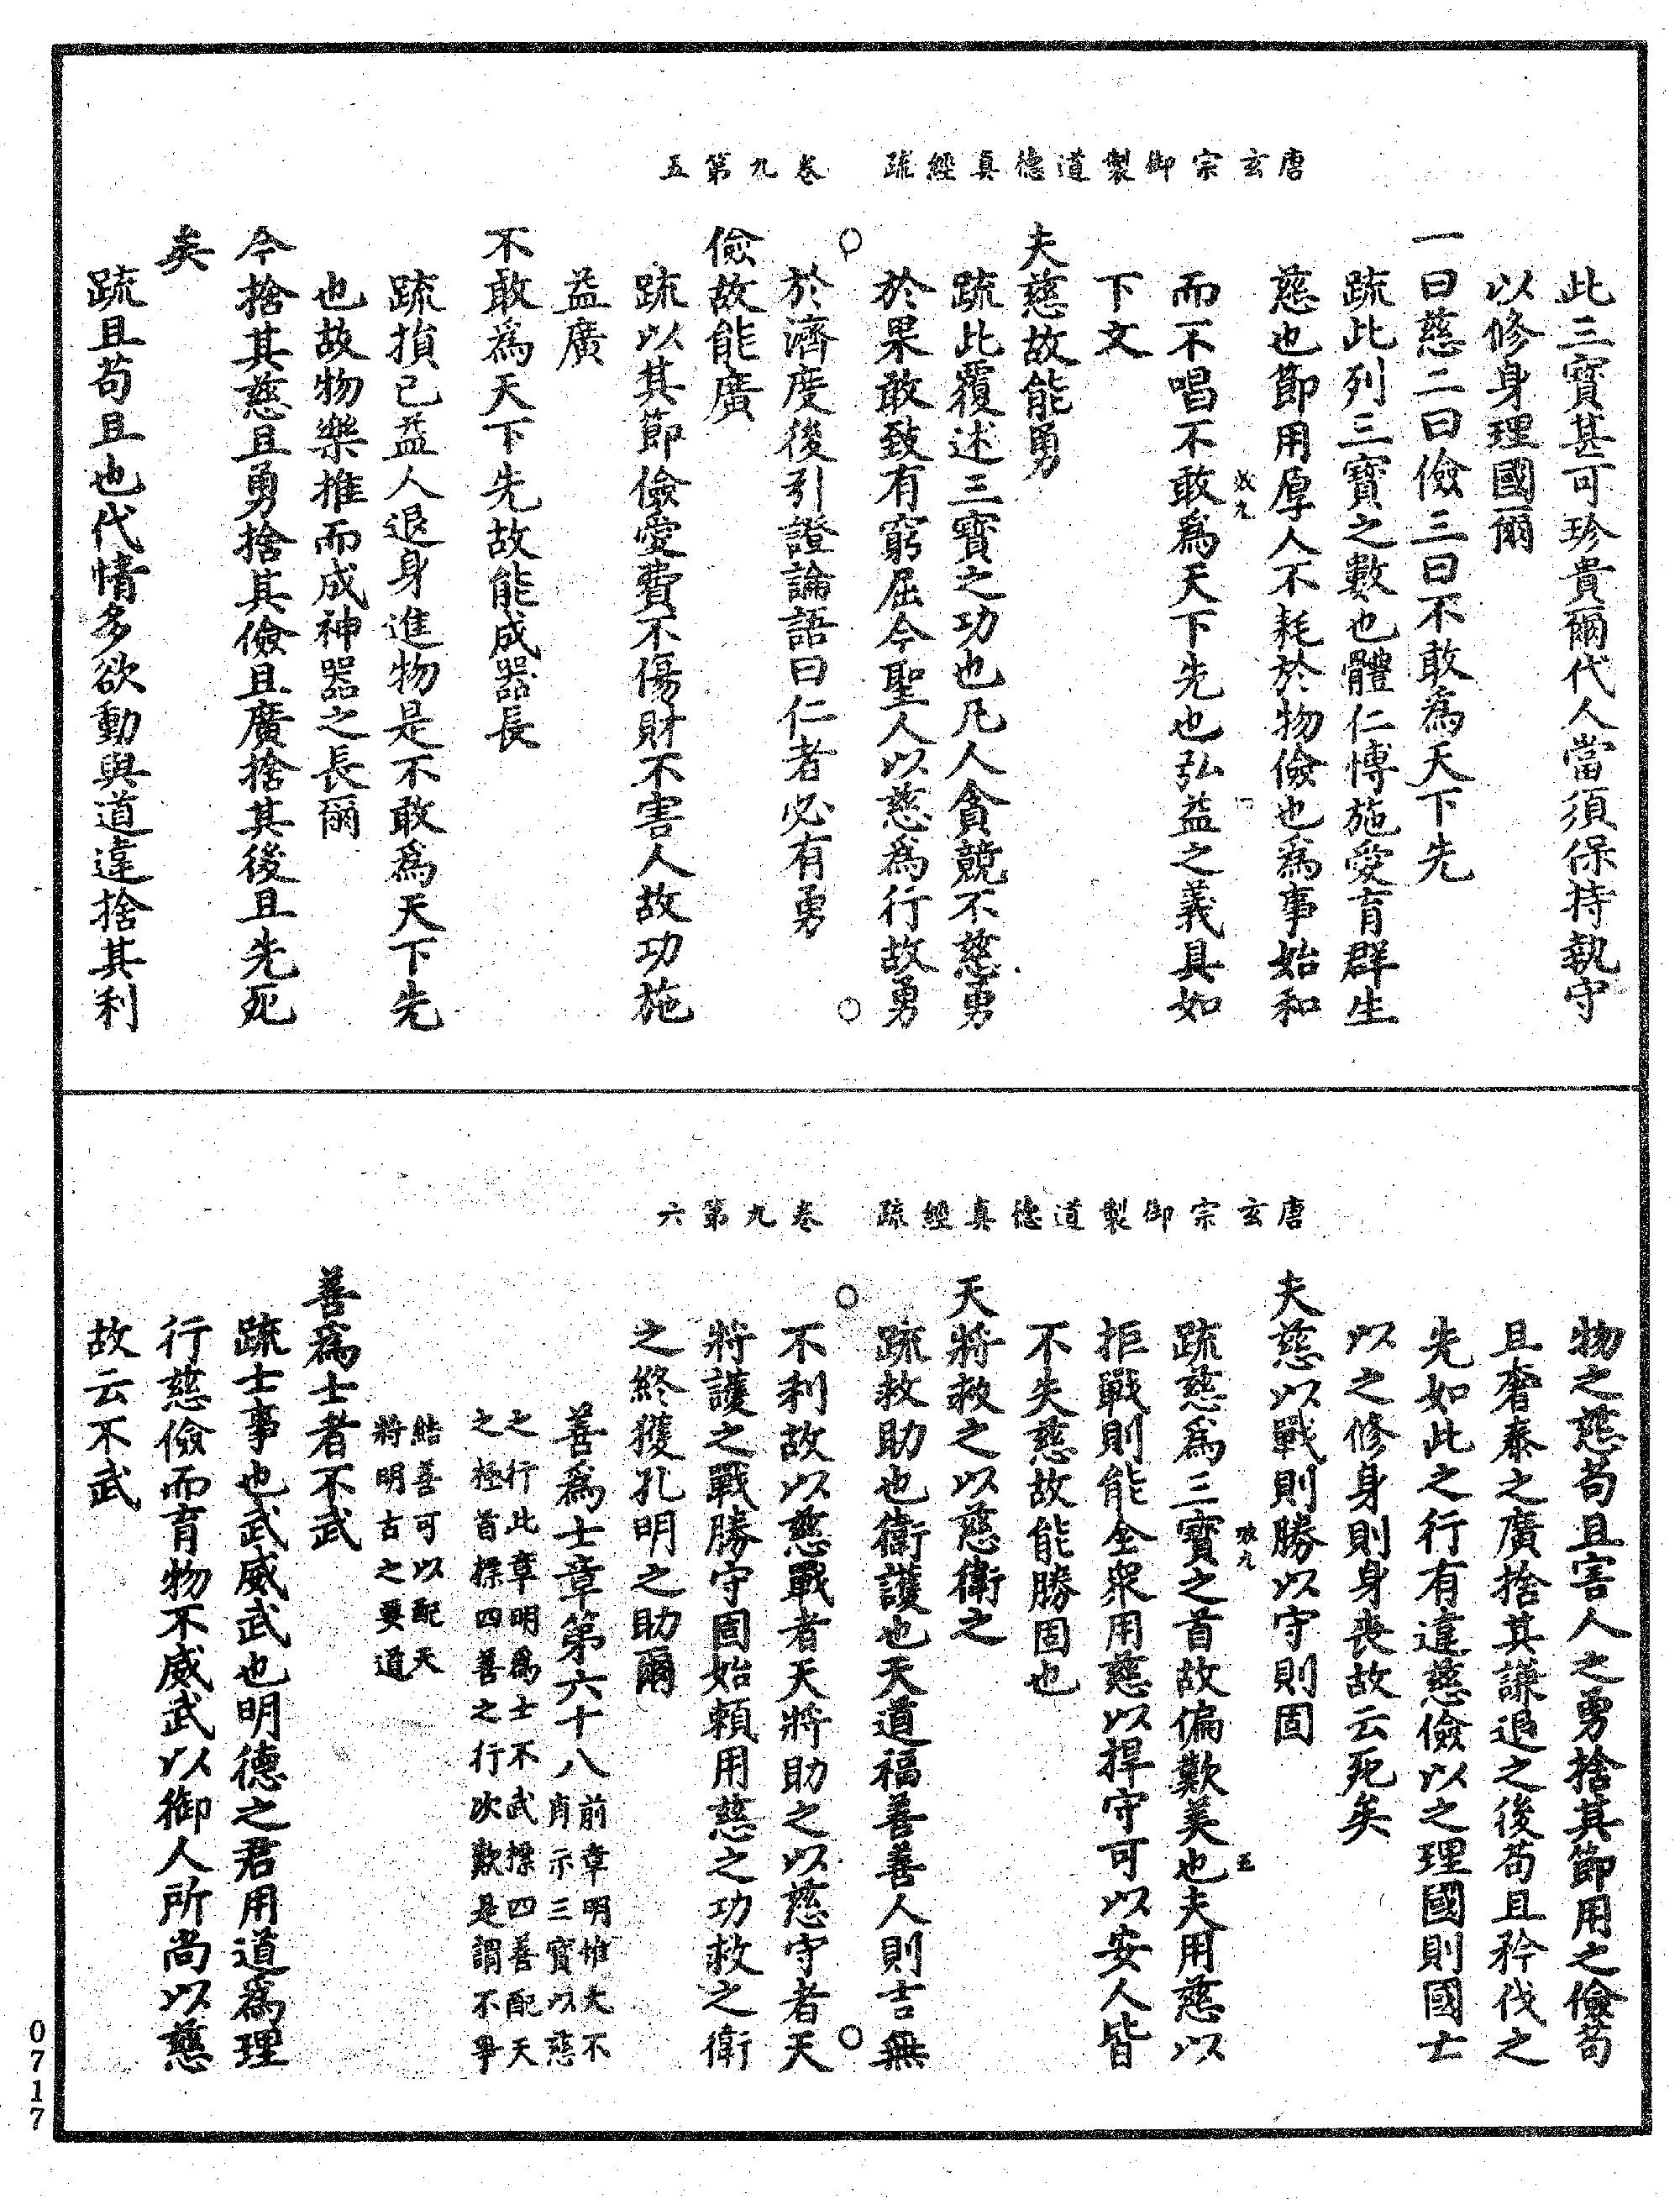 唐玄宗御製道德真經疏　卷九第五
此三寶甚可珍貴爾代人當須保持執守
以修身理國爾
一曰慈二曰儉三曰不敢為天下先
疏此列三寶之數也體仁博施愛育群生
慈也節用厚人不耗於物儉也為事始和
而不唱不敢為天下先也弘益之義具如
下文
夫慈故能勇
疏此覆述三寶之功也凡人貪競不慈勇
於果敢致有窮屈今聖人以慈為行故勇
於濟度後引證論語曰仁者必有勇
儉故能廣
疏以其節儉愛費不傷財不害人故功施
益廣
不敢為天下先故能成器長
疏損己益人退身進物是不敢為天下先
也故物樂推而成神器之長爾
今捨其慈且勇捨其儉且廣捨其後且先死
矣
疏且苟且也代情多欲動與道違捨其利
唐玄宗御製道德真經疏　卷九第六
物之慈苟且害人之勇捨其節用之儉苟
且奢泰之廣捨其謙退之後苟且矜伐之
先如此之行有違慈儉以之理國則國亡
以之修身則身喪故云死矣
夫慈以戰則勝以守則固
疏慈為三寶之首故偏歎美也夫用慈以
拒戰則能全眾用慈以捍守可以安人皆
不失慈故能勝固也
天將救之以慈衛之
疏救助也衛護也天道福善善人則吉無
不利故以慈戰者天將助之以慈守者天
將護之戰勝守固始賴用慈之功救之衛
之終獲孔明之助爾
善為士章第六十八前章明惟大不
肖示三寶以慈
之行此章明為士不武摽四善配天
之極首摽四善之行次歎是謂不爭
結善可以配天
將明古之要道
善為士者不武
疏士事也武威武也明德之君用道為理
行慈儉而育物不威武以御人所尚以慈
故云不武
0717